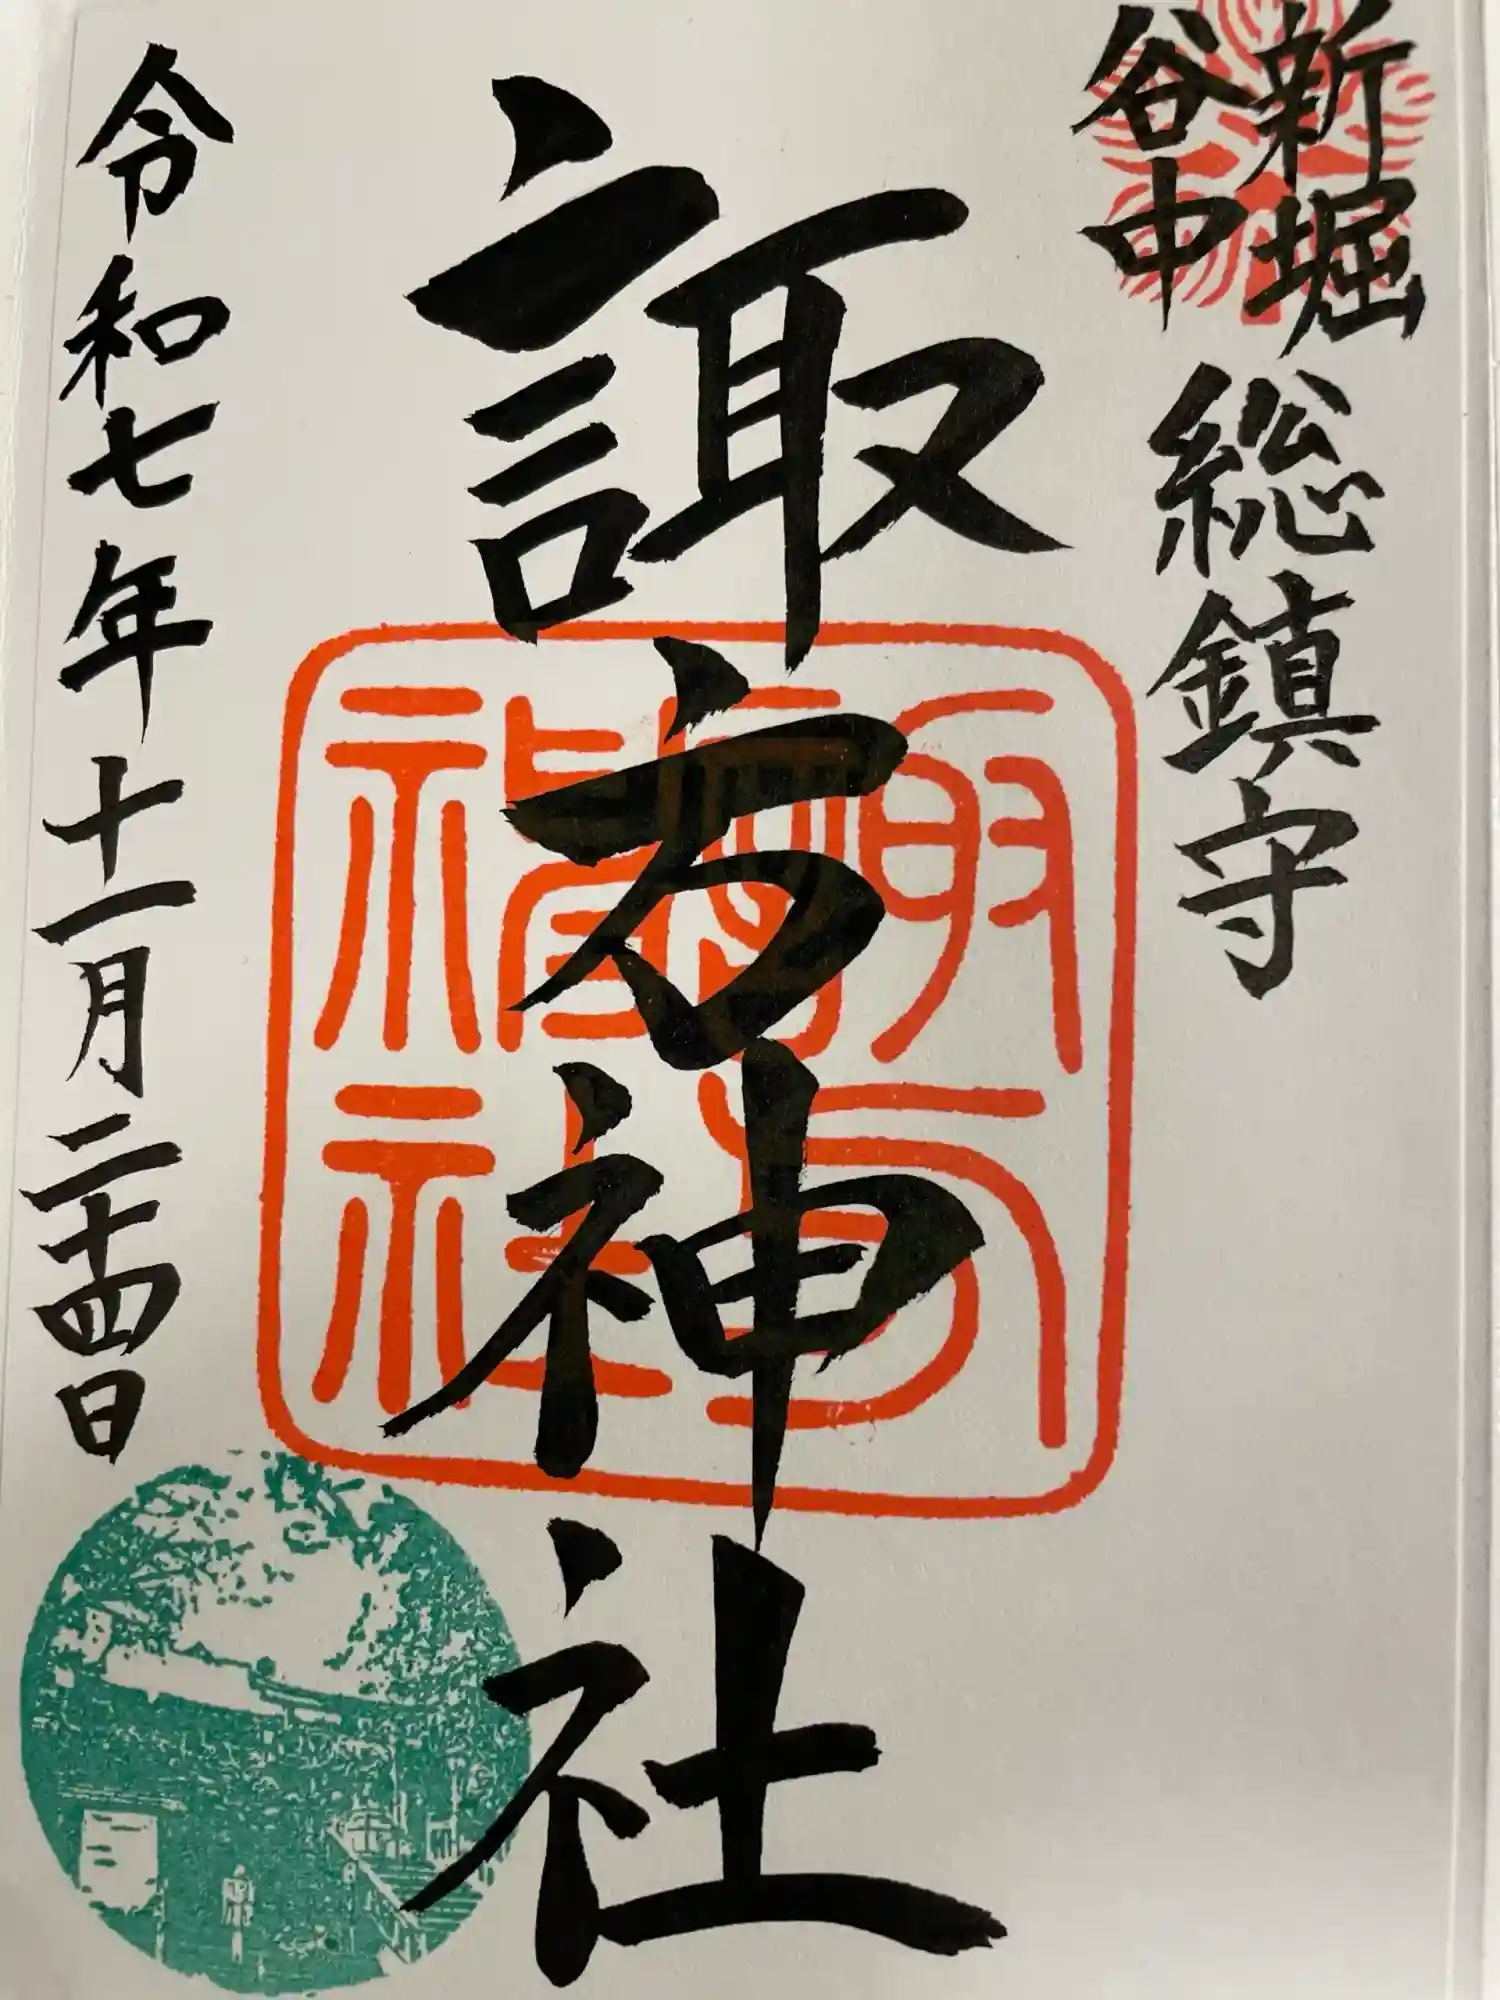 新堀
谷中
総鎮守
諏方神社
諏方神社
令和七年十一月二十四日